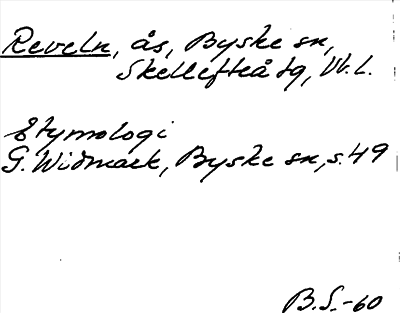 Reveln, ås, Byske sn,
Skellefteå tg, Vb. l.
Etymologi
G. Widmark, Byske sn, s. 49
B.S.-60